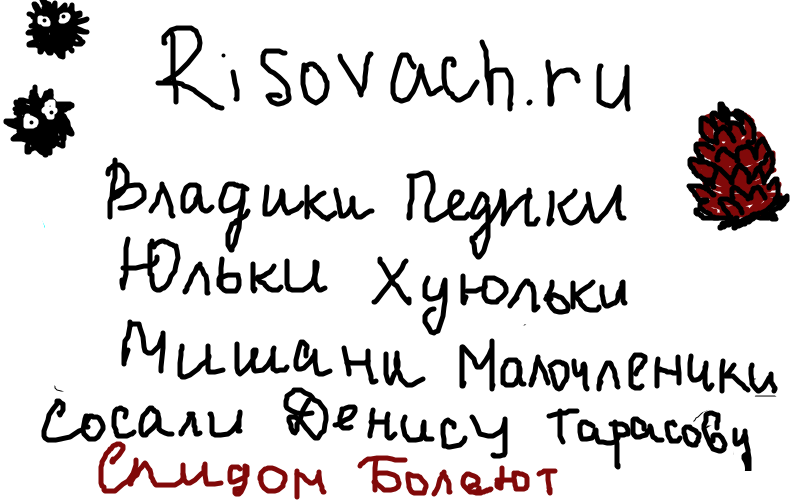 Risovach.ru
Владики Педики
Юльки Хуюльки
Мишани Малочленики
сосали Денису Тарасову
Спидом Болеют